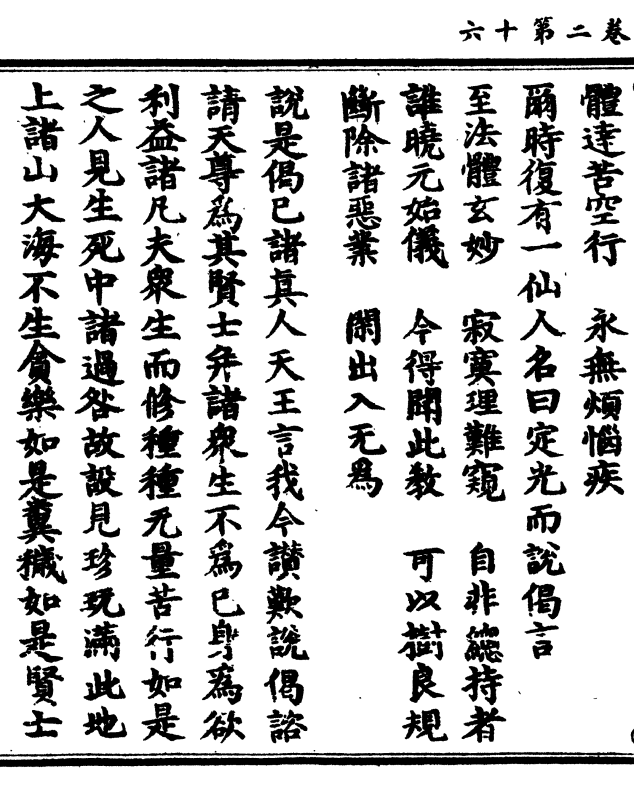 卷二第十六
體達苦空行　永無煩惱疾
爾時復有一仙人名曰定光而說偈言
至法體玄妙　寂寞理難窺　自非緫持者
誰曉元始儀　今得聞此教　可以樹良規
斷除諸惡業　閑出入无為
說是偈已諸真人天王言我今讚歎說偈諮
請天尊為其賢士并諸眾生不為已身為欲
利益諸凡夫眾生而修種種无量苦行如是
之人見生死中諸過咎故設見珍玩滿此地
上諸山大海不生貪樂如是糞穢如是賢士